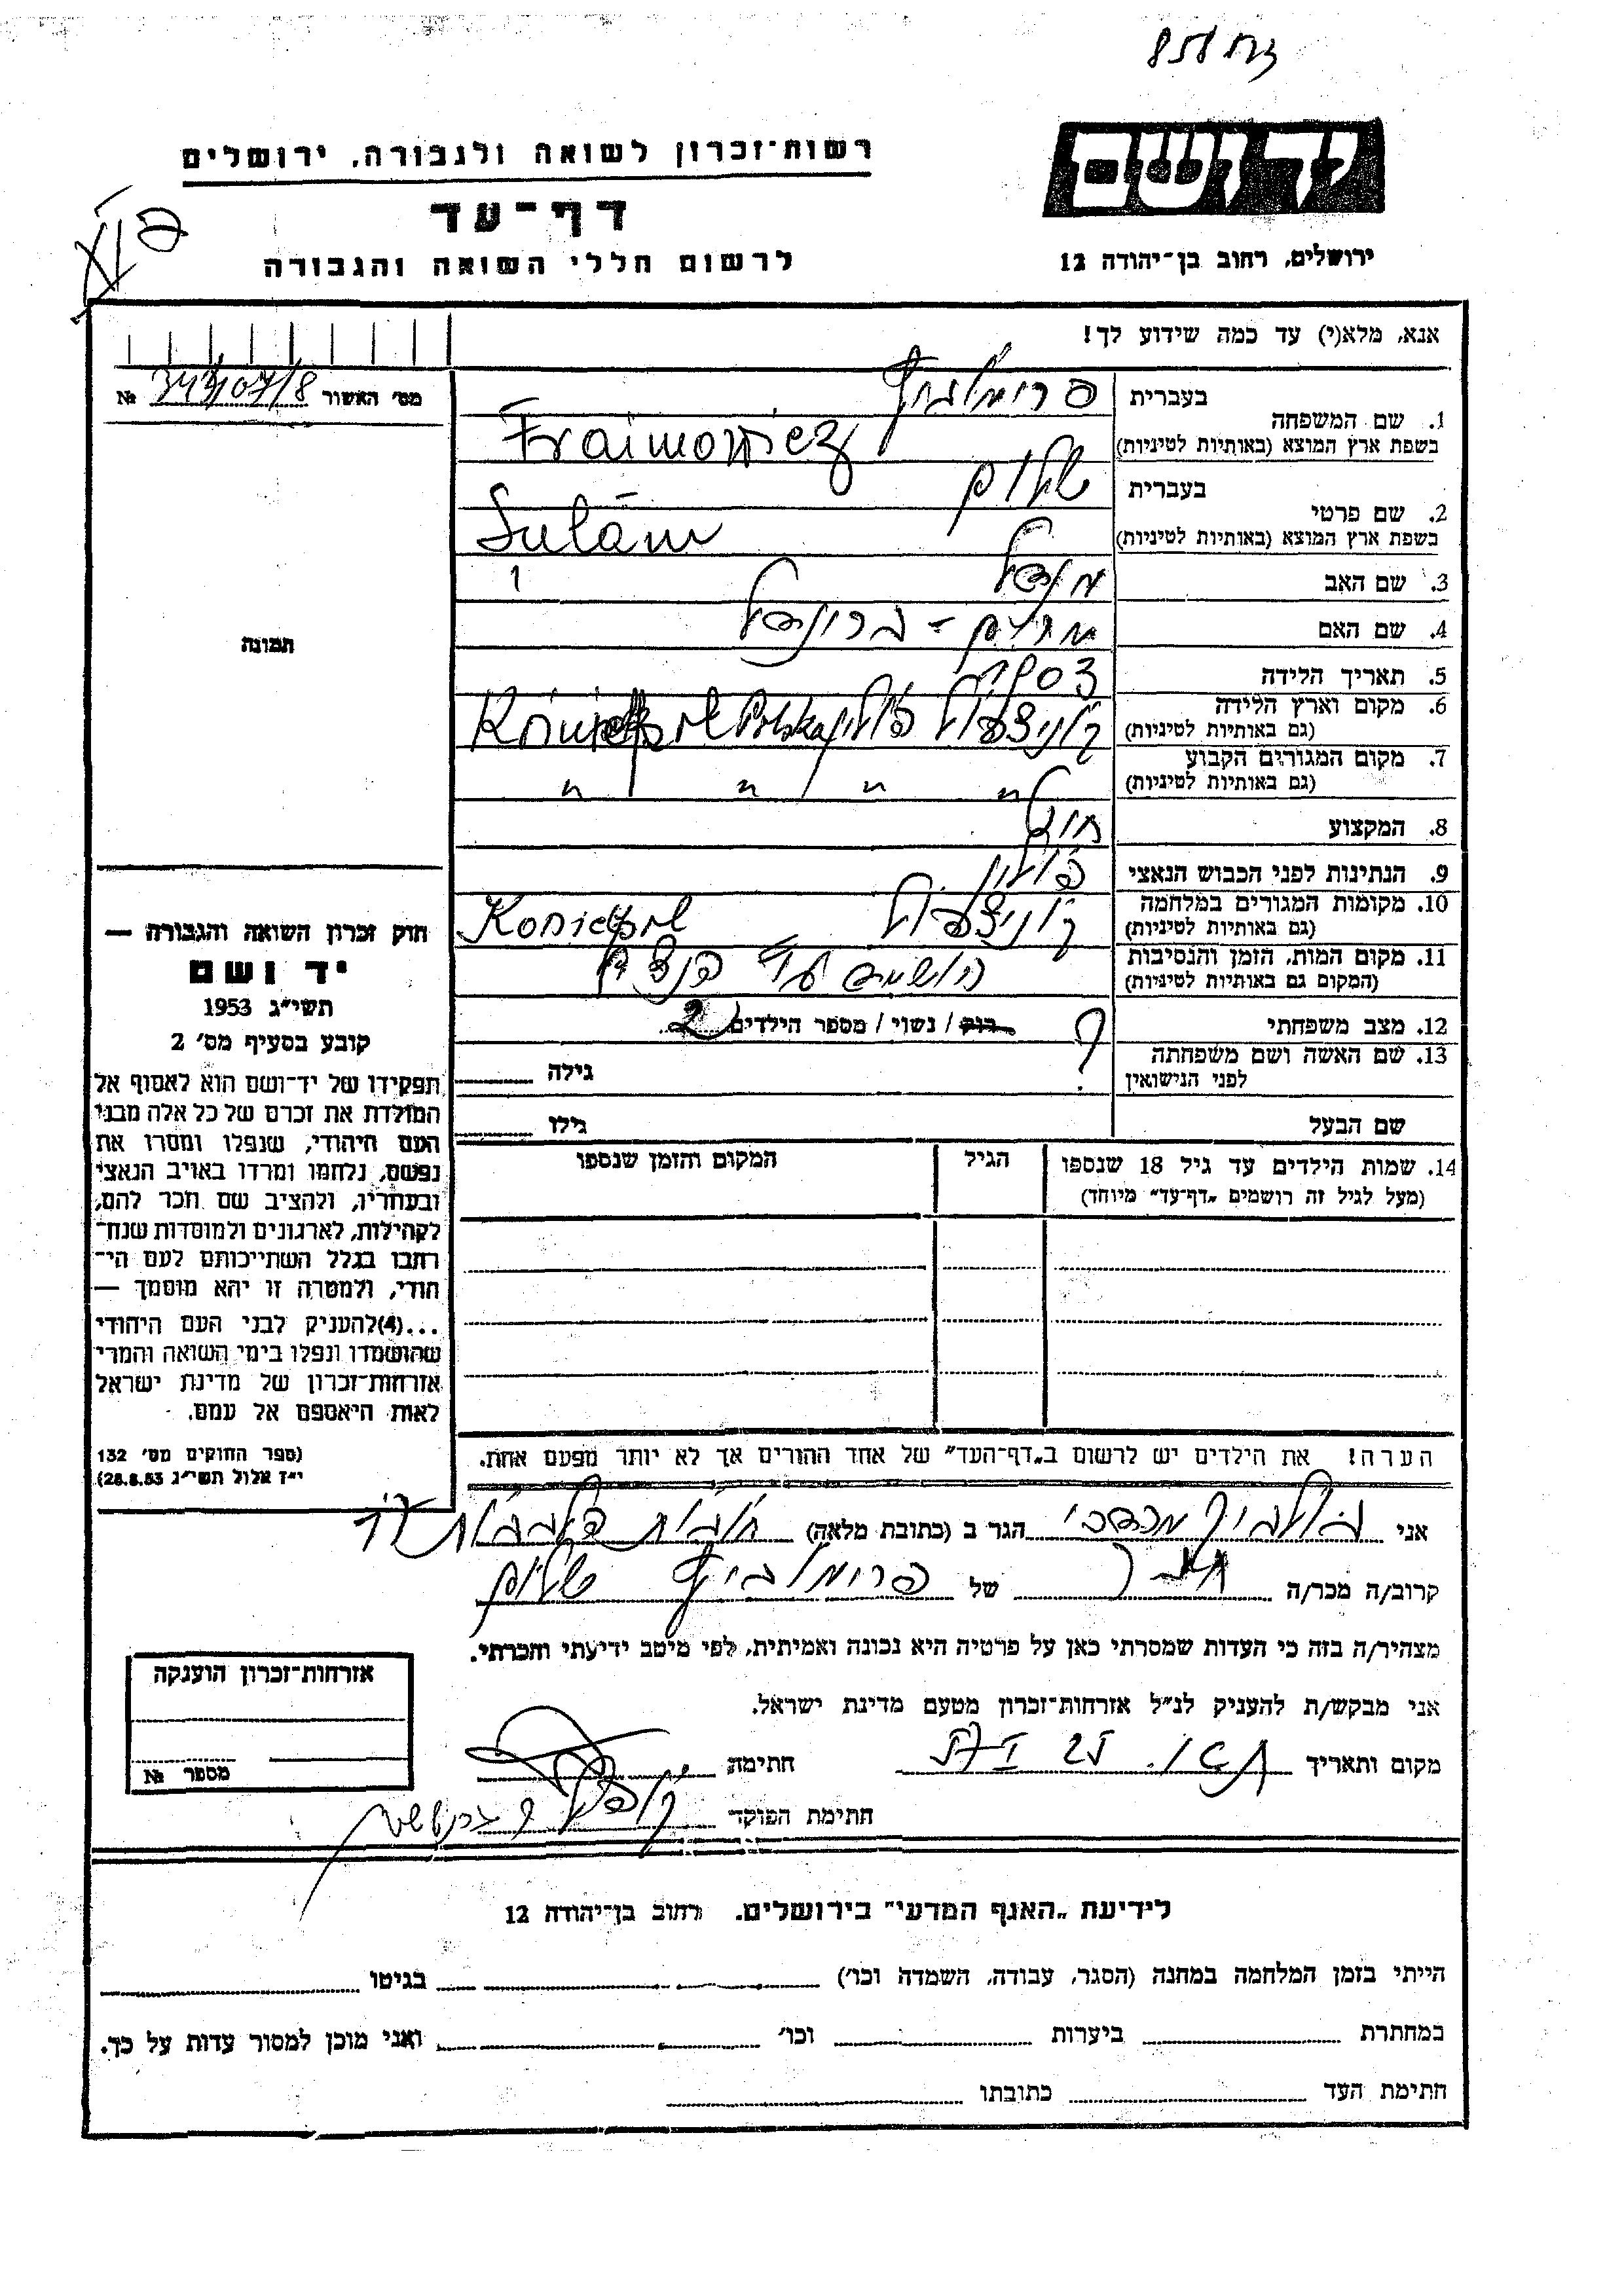 יד ושם
רשות־זכרון לשואה ולגבורה, ירושלים
דף־עד
לרשום חללי השואה והגבורה
ירושלים, רחוב בן־יהודה 12
אנא, מלא(י) עד כמה שידוע לך!
מס׳ האשור №
1. שם המשפחה
בעברית
בשפת ארץ המוצא (באותיות לטיניות) Fraimowicz
2. שם פרטי
בעברית שלום
בשפת ארץ המוצא (באותיות לטיניות) Sulam
3. שם האב מנדל
4. שם האם מרים - בריינדל
5. תאריך הלידה 1903
6. מקום וארץ הלידה (גם באותיות לטיניות) קוניצפול פולין Polska
7. מקום המגורים הקבוע (גם באותיות לטיניות) " " " "
8. המקצוע
9. הנתינות לפני הכבוש הנאצי פולין
10. מקומות המגורים במלחמה (גם באותיות לטיניות) קוניצפול Koniecpol
11. מקום המות, הזמן והנסיבות (המקום גם באותיות לטיניות) הושמד
12. מצב משפחתי רוק / נשוי / מספר הילדים 2
13. שם האשה ושם משפחתה לפני הנישואין ? גילה
שם הבעל גילו
14. שמות הילדים עד גיל 18 שנספו הגיל המקום והזמן שנספו
(מעל לגיל זה רושמים „דף־עד״ מיוחד)
הערה! את הילדים יש לרשום ב„דף־העד״ של אחד ההורים אך לא יותר מפעם אחת.
תמונה
חוק זכרון השואה והגבורה —
יד ושם
תשי״ג 1953
קובע בסעיף מס׳ 2
תפקידו של יד־ושם הוא לאסוף אל
המולדת את זכרם של כל אלה מבני
העם היהודי, שנפלו ומסרו את
נפשם, נלחמו ומרדו באויב הנאצי
ובעוזריו, ולהציב שם וזכר להם,
לקהילות, לארגונים ולמוסדות שנח־
רבו בגלל השתייכותם לעם הי־
הודי, ולמטרה זו יהא מוסמך —
...(4)להעניק לבני העם היהודי
שהושמדו ונפלו בימי השואה והמרי
אזרחות־זכרון של מדינת ישראל
לאות היאספם אל עמם.
(ספר החוקים מס׳ 132
י״ז אלול תשי״ג 28.8.53)
אני הגר ב (כתובת מלאה)
קרוב/ה מכר/ה חבר של פרימוביץ שלום
מצהיר/ה בזה כי העדות שמסרתי כאן על פרטיה היא נכונה ואמיתית, לפי מיטב ידיעתי והכרתי.
אני מבקש/ת להעניק לנ״ל אזרחות־זכרון מטעם מדינת ישראל.
מקום ותאריך חתימה
חתימת הפוקד
אזרחות־זכרון הוענקה
מספר №
לידיעת „האגף המדעי״ בירושלים, רחוב בן־יהודה 12
הייתי בזמן המלחמה במחנה (הסגר, עבודה, השמדה וכו׳) בגיטו
במחתרת ביערות וכו׳ ואני מוכן למסור עדות על כך.
חתימת העד כתובתו